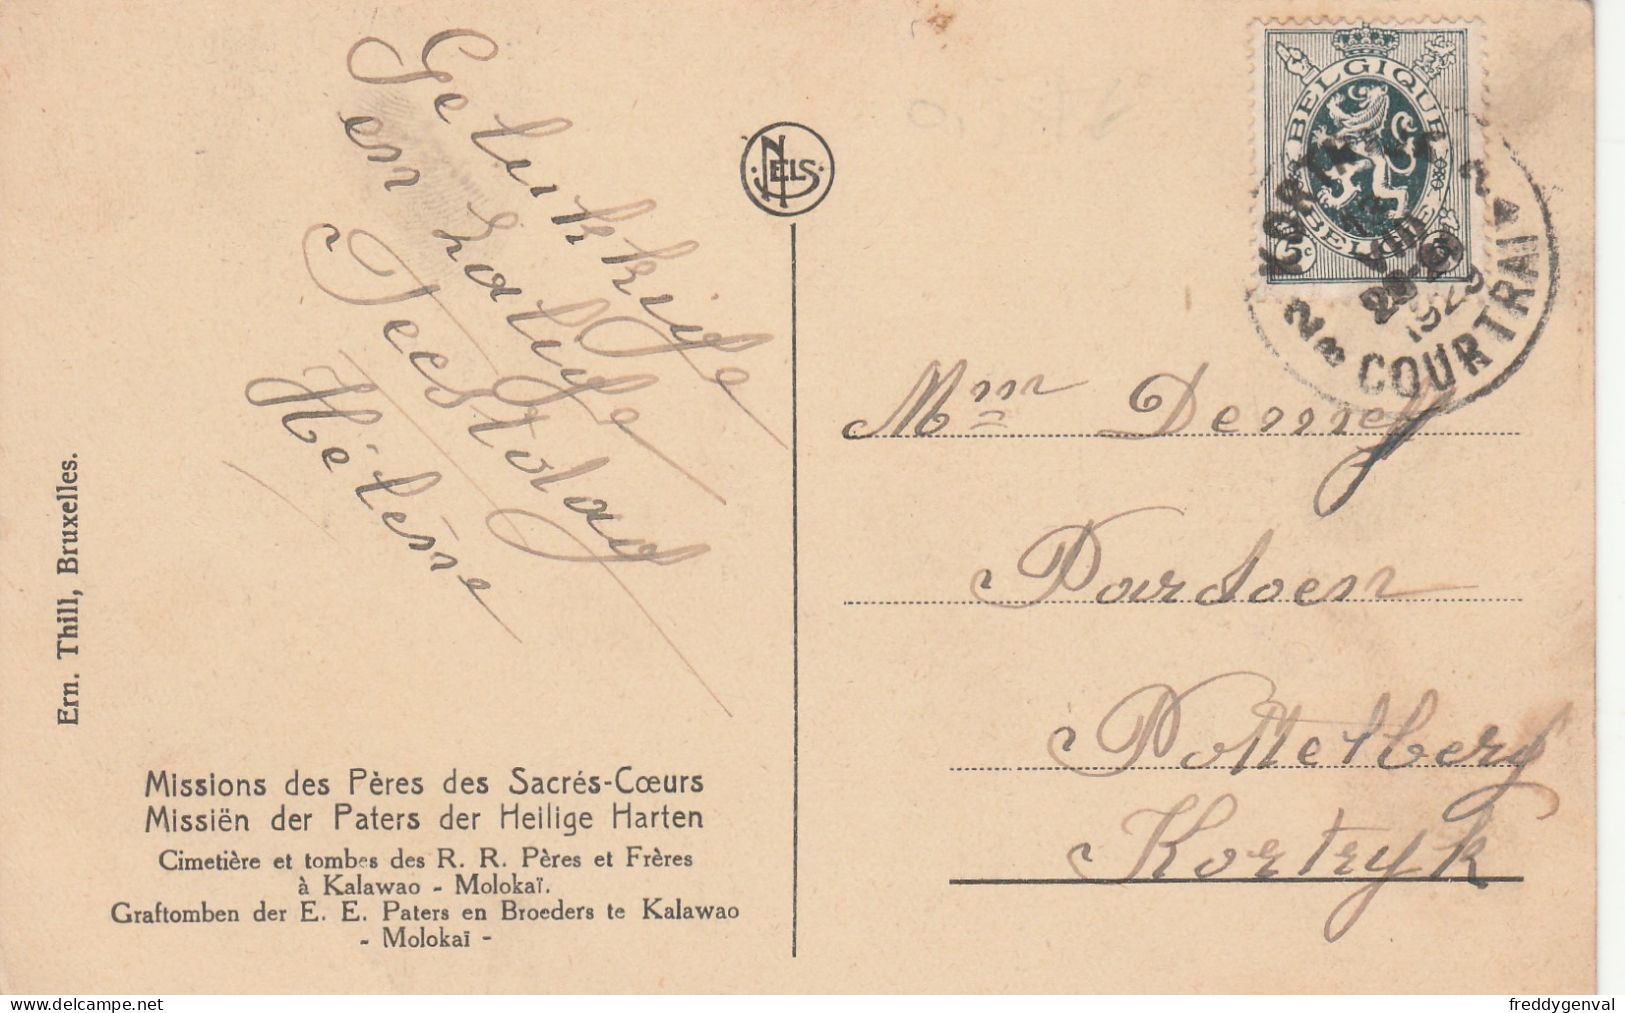 Gelukkige
en zalige
Feestdag
Hélène
NELS
BELGIQUE
BELGIE
5c
KORTRIJK 2
VIII
1929
2 COURTRAI
Mme
Pardoen
Pottelberg
Kortryk
Ern. Thill, Bruxelles.
Missions des Pères des Sacrés-Cœurs
Missiën der Paters der Heilige Harten
Cimetière et tombes des R. R. Pères et Frères
à Kalawao - Molokaï.
Graftomben der E. E. Paters en Broeders te Kalawao
- Molokaï -
delcampe.net
freddygenval